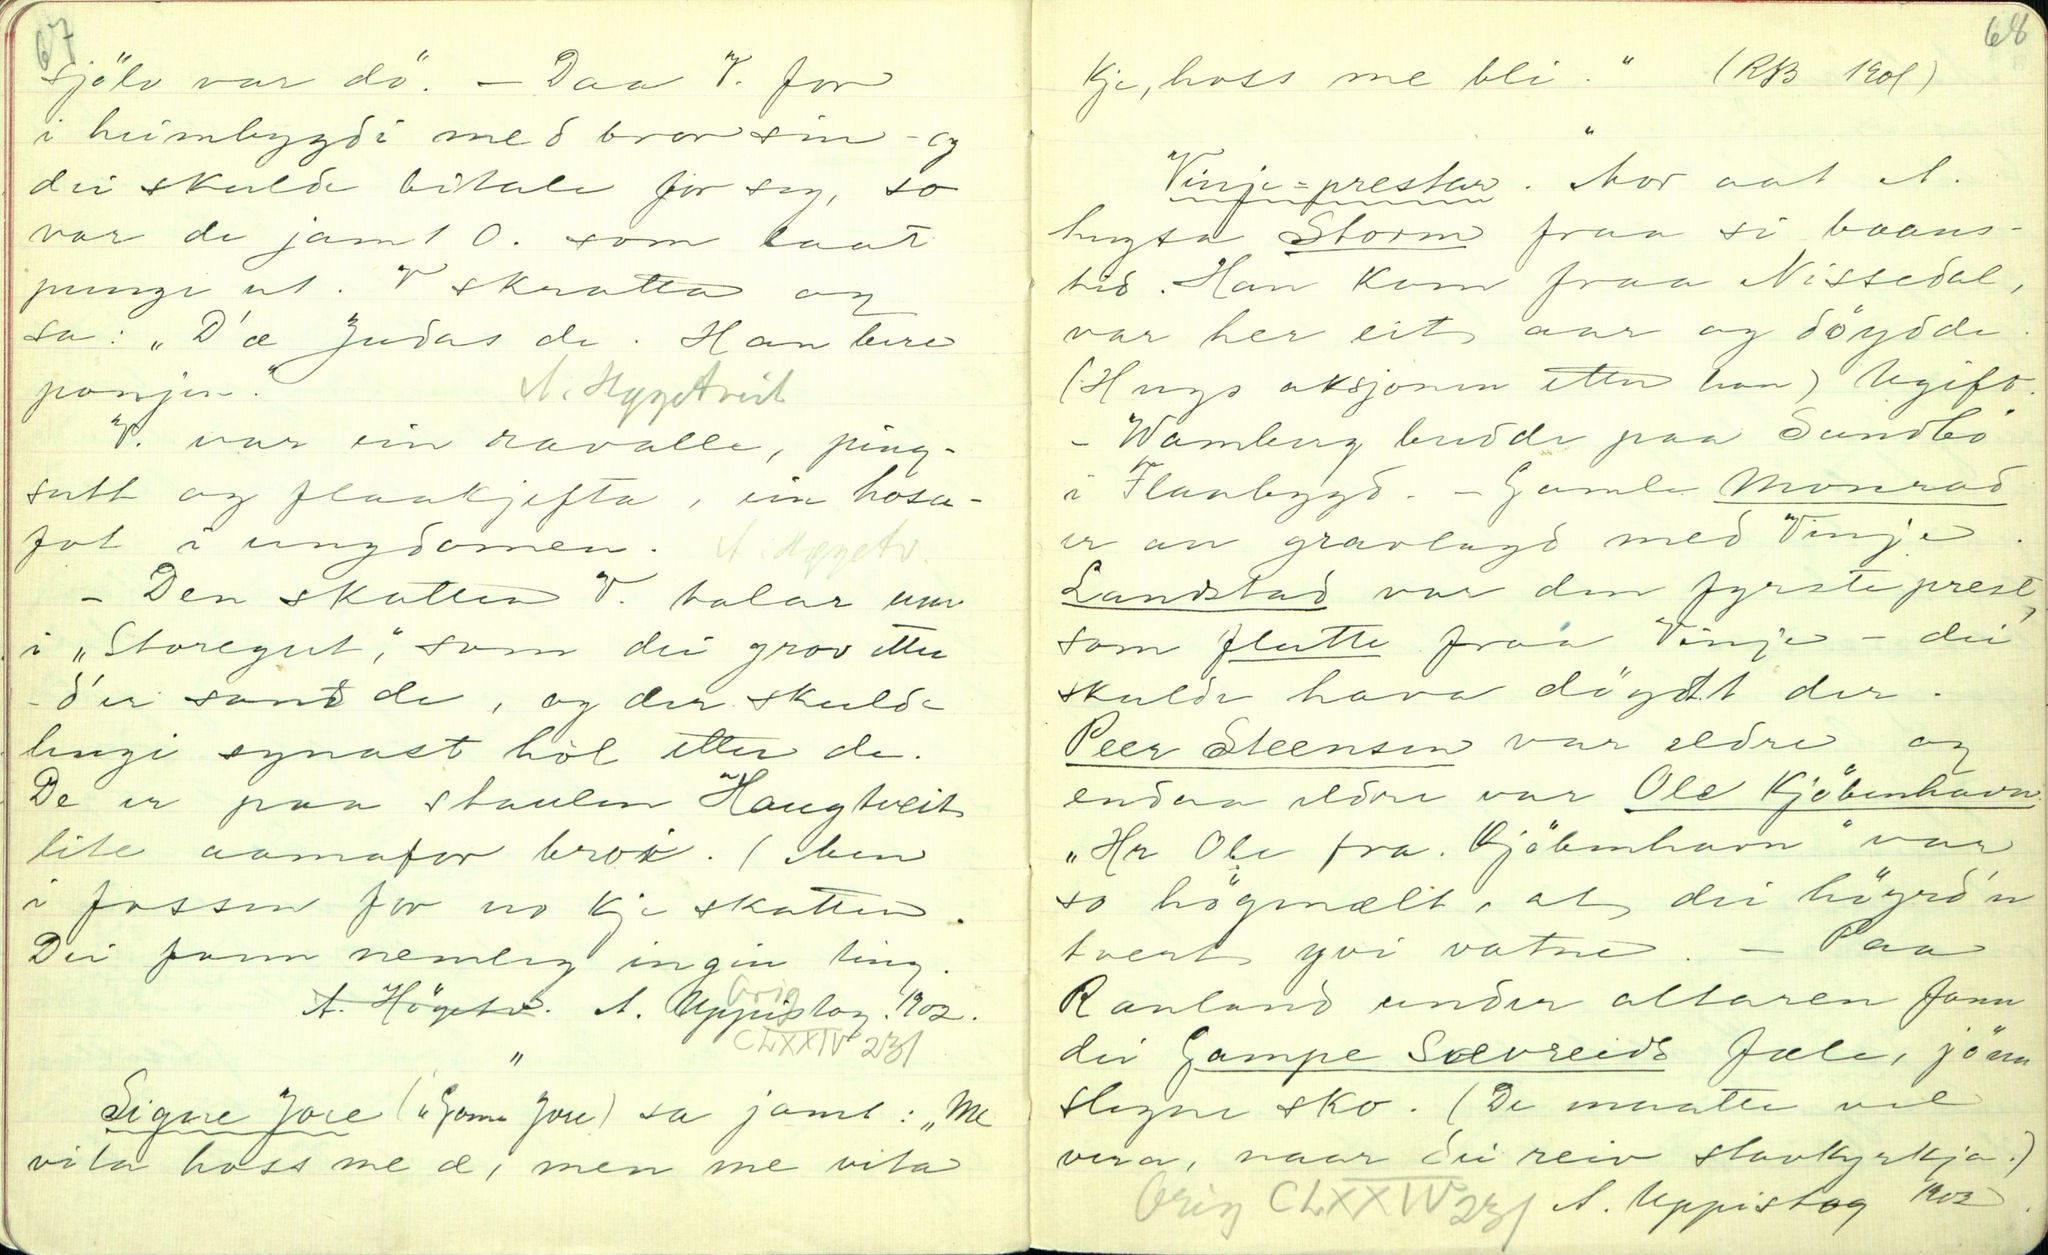 67
sjölv var dö". – Daa V. for
i heimbygdi med bror sin – og
dei skulde bitale for seg, so
var de jamt O. som laat
pungi ut. V skratta og
sa: „D'æ Judas de. Han bere
ponjen."
A. Hægetveit
V. var ein ravalle, ping-
sutt og flaakjefta, ein hosu-
fot i ungdomen. A. Hægetv.
– Den skatten V. talar um
i „Storegut", som dei grov etter
– d'er sandt de, og der skulde
lengi synast hòl etter de.
De er paa staulen Haugtveit
lite aamafor broi. (Men
i fossen for no kje skatten.
Dei fann nemleg ingin ting.
A. Högetv. A. Uppistog. 1902.
Orig CLXXIV 231
"
Signe Jore („Gamle Jore) sa jamt: „Me
vita hoss me æ, men me vita
68
kje, hoss me bli." (RB 1901)
"
Vinje-prestar. Mor aat A.
hugsa Storm fraa si baans-
tid. Han kom fraa Nissedal,
var her eit aar og döydde.
(Hugs aksjonen etter han) Ugift.
– Wamberg budde paa Sundbö
i Flaabygd. – Gamle Monrad
er an gravlagd med Vinje.
Landstad var den fyrste prest,
som flutte fraa Vinje – dei
skulde hava döydt der.
Peer Steensen var eldre og
endaa eldre var Ole Kjöbenhavn.
„Hr Ole fra Kjöbenhavn" var
so högmælt, at dei höyrd'n
tvert yvi vatne. – Paa
Rauland under altaren fann
dei Gampe Sævreids fæle, jönn
slegne sko. (De maatte vel
vera, naar dei reiv stavkyrkja.)
Orig CLXXIV 231 A. Uppistog 1902.